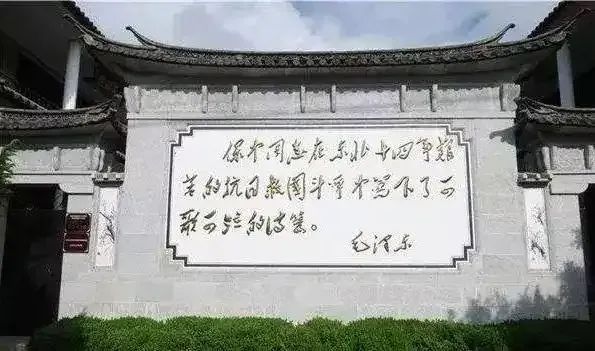 保中同志在东北十四年艰
苦的抗日救国斗争中写下了可
歌可泣的诗篇。
毛泽东